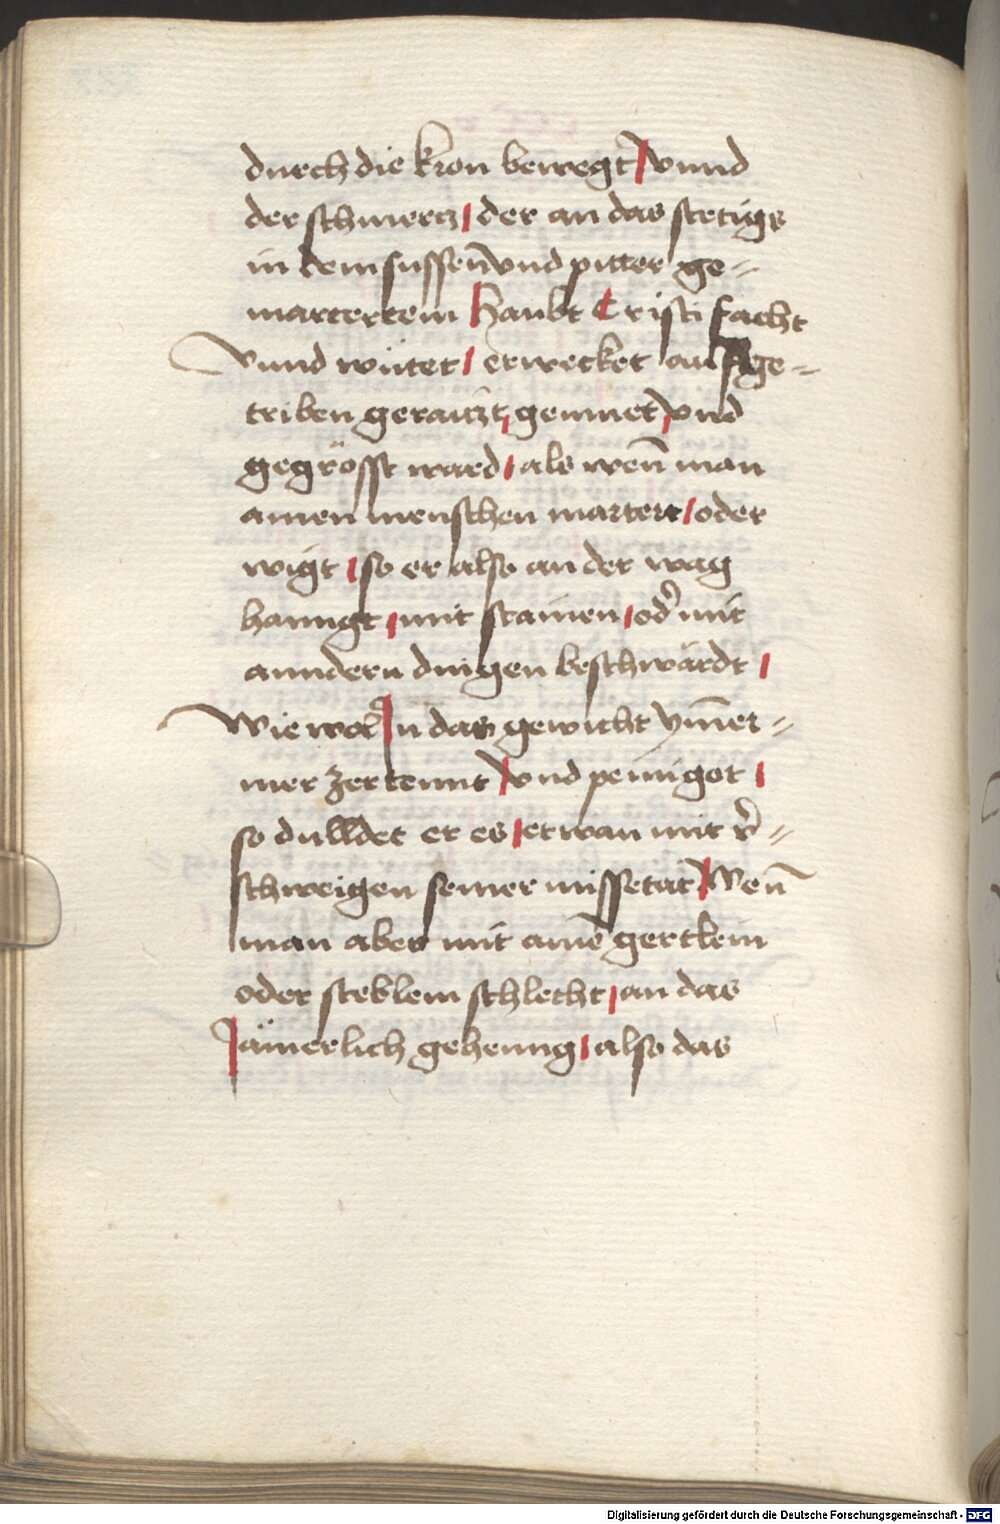 durch die kron bewegt / vnnd
der schmercz / der an das stetigs
in dem sussen̄ vnd pitter ge-
martertem Haubt Cristi facht
vnnd wütet / erwecket auff ge-
triben geraitzt, gemiret, vnd
gegrösst ward / als wen̄ man
ainen menschen martert / oder
wigt / so er also an der wag
hanngt / mit stainen / od̓ mit
anndern dingen beschwärdt /
Wie wol In das gewicht ym̄er-
mer zertennt / vnd peiniget /
so dulldet er es / etwan mit v̓-
schweigen seiner missetat / Wen̄
man aber mit aine̅ gertlein
oder steblein schlecht / an das
Jämerlich gehenng / also das
Digitalisierung gefördert durch die Deutsche Forschungsgemeinschaft - DFG